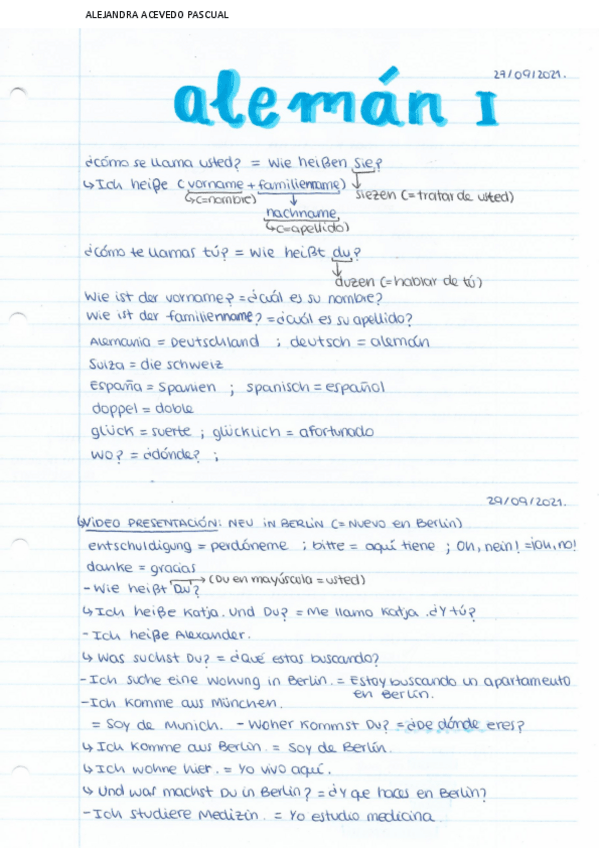 ALEJANDRA ACEVEDO PASCUAL
27/09/2021.
alemán I
¿cómo se llama usted? = Wie heißen Sie?
↳ Ich heiße (vorname + familienname) siezen (= tratar de usted)
↳(=nombre)
nachname
↳(=apellido)
¿cómo te llamas tú? = Wie heißt du?
duzen (= hablar de tú)
Wie ist der vorname? = ¿cuál es su nombre?
Wie ist der familienname? = ¿cuál es su apellido?
Alemania = Deutschland ; deutsch = alemán
Suiza = die schweiz
España = Spanien ; spanisch = español
doppel = doble
glück = suerte ; glücklich = afortunado
WO? = ¿dónde? ;
29/09/2021.
↳ VÍDEO PRESENTACIÓN: NEU in BERLIN (= NUEVO en Berlín)
entschuldigung = perdóneme ; bitte = aquí tiene ; Oh, nein! = ¡oh, no!
danke = gracias
- Wie heißt Du? (Du en mayúscula = usted)
↳ Ich heiße Katja. Und Du? = Me llamo Katja. ¿Y tú?
- Ich heiße Alexander.
↳ Was suchst Du? = ¿Qué estas buscando?
- Ich suche eine Wohung in Berlin. = Estoy buscando un apartamento
en Berlín.
- Ich komme aus München.
= Soy de Munich. - Woher kommst Du? = ¿De dónde eres?
↳ Ich komme aus Berlin. = Soy de Berlín.
↳ Ich wohne hier. = Yo vivo aquí.
↳ Und war machst Du in Berlin? = ¿Y que haces en Berlín?
- Ich studiere Medizin. = Yo estudio medicina.